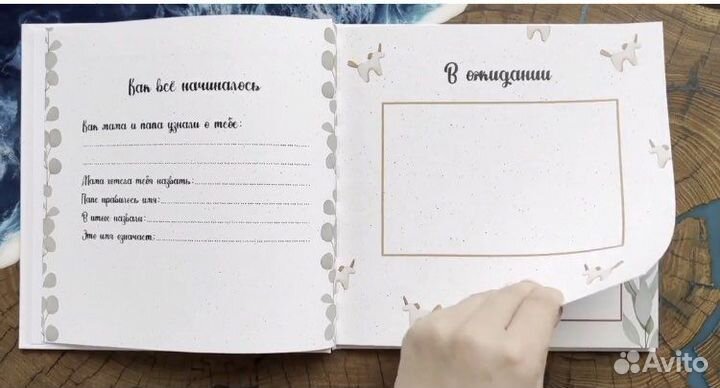 Как всё начиналось
Как мама и папа узнали о тебе:
Мама хотела тебя назвать:
Папе нравилось имя:
В итоге назвали:
Это имя означает:
В ожидании
Avito